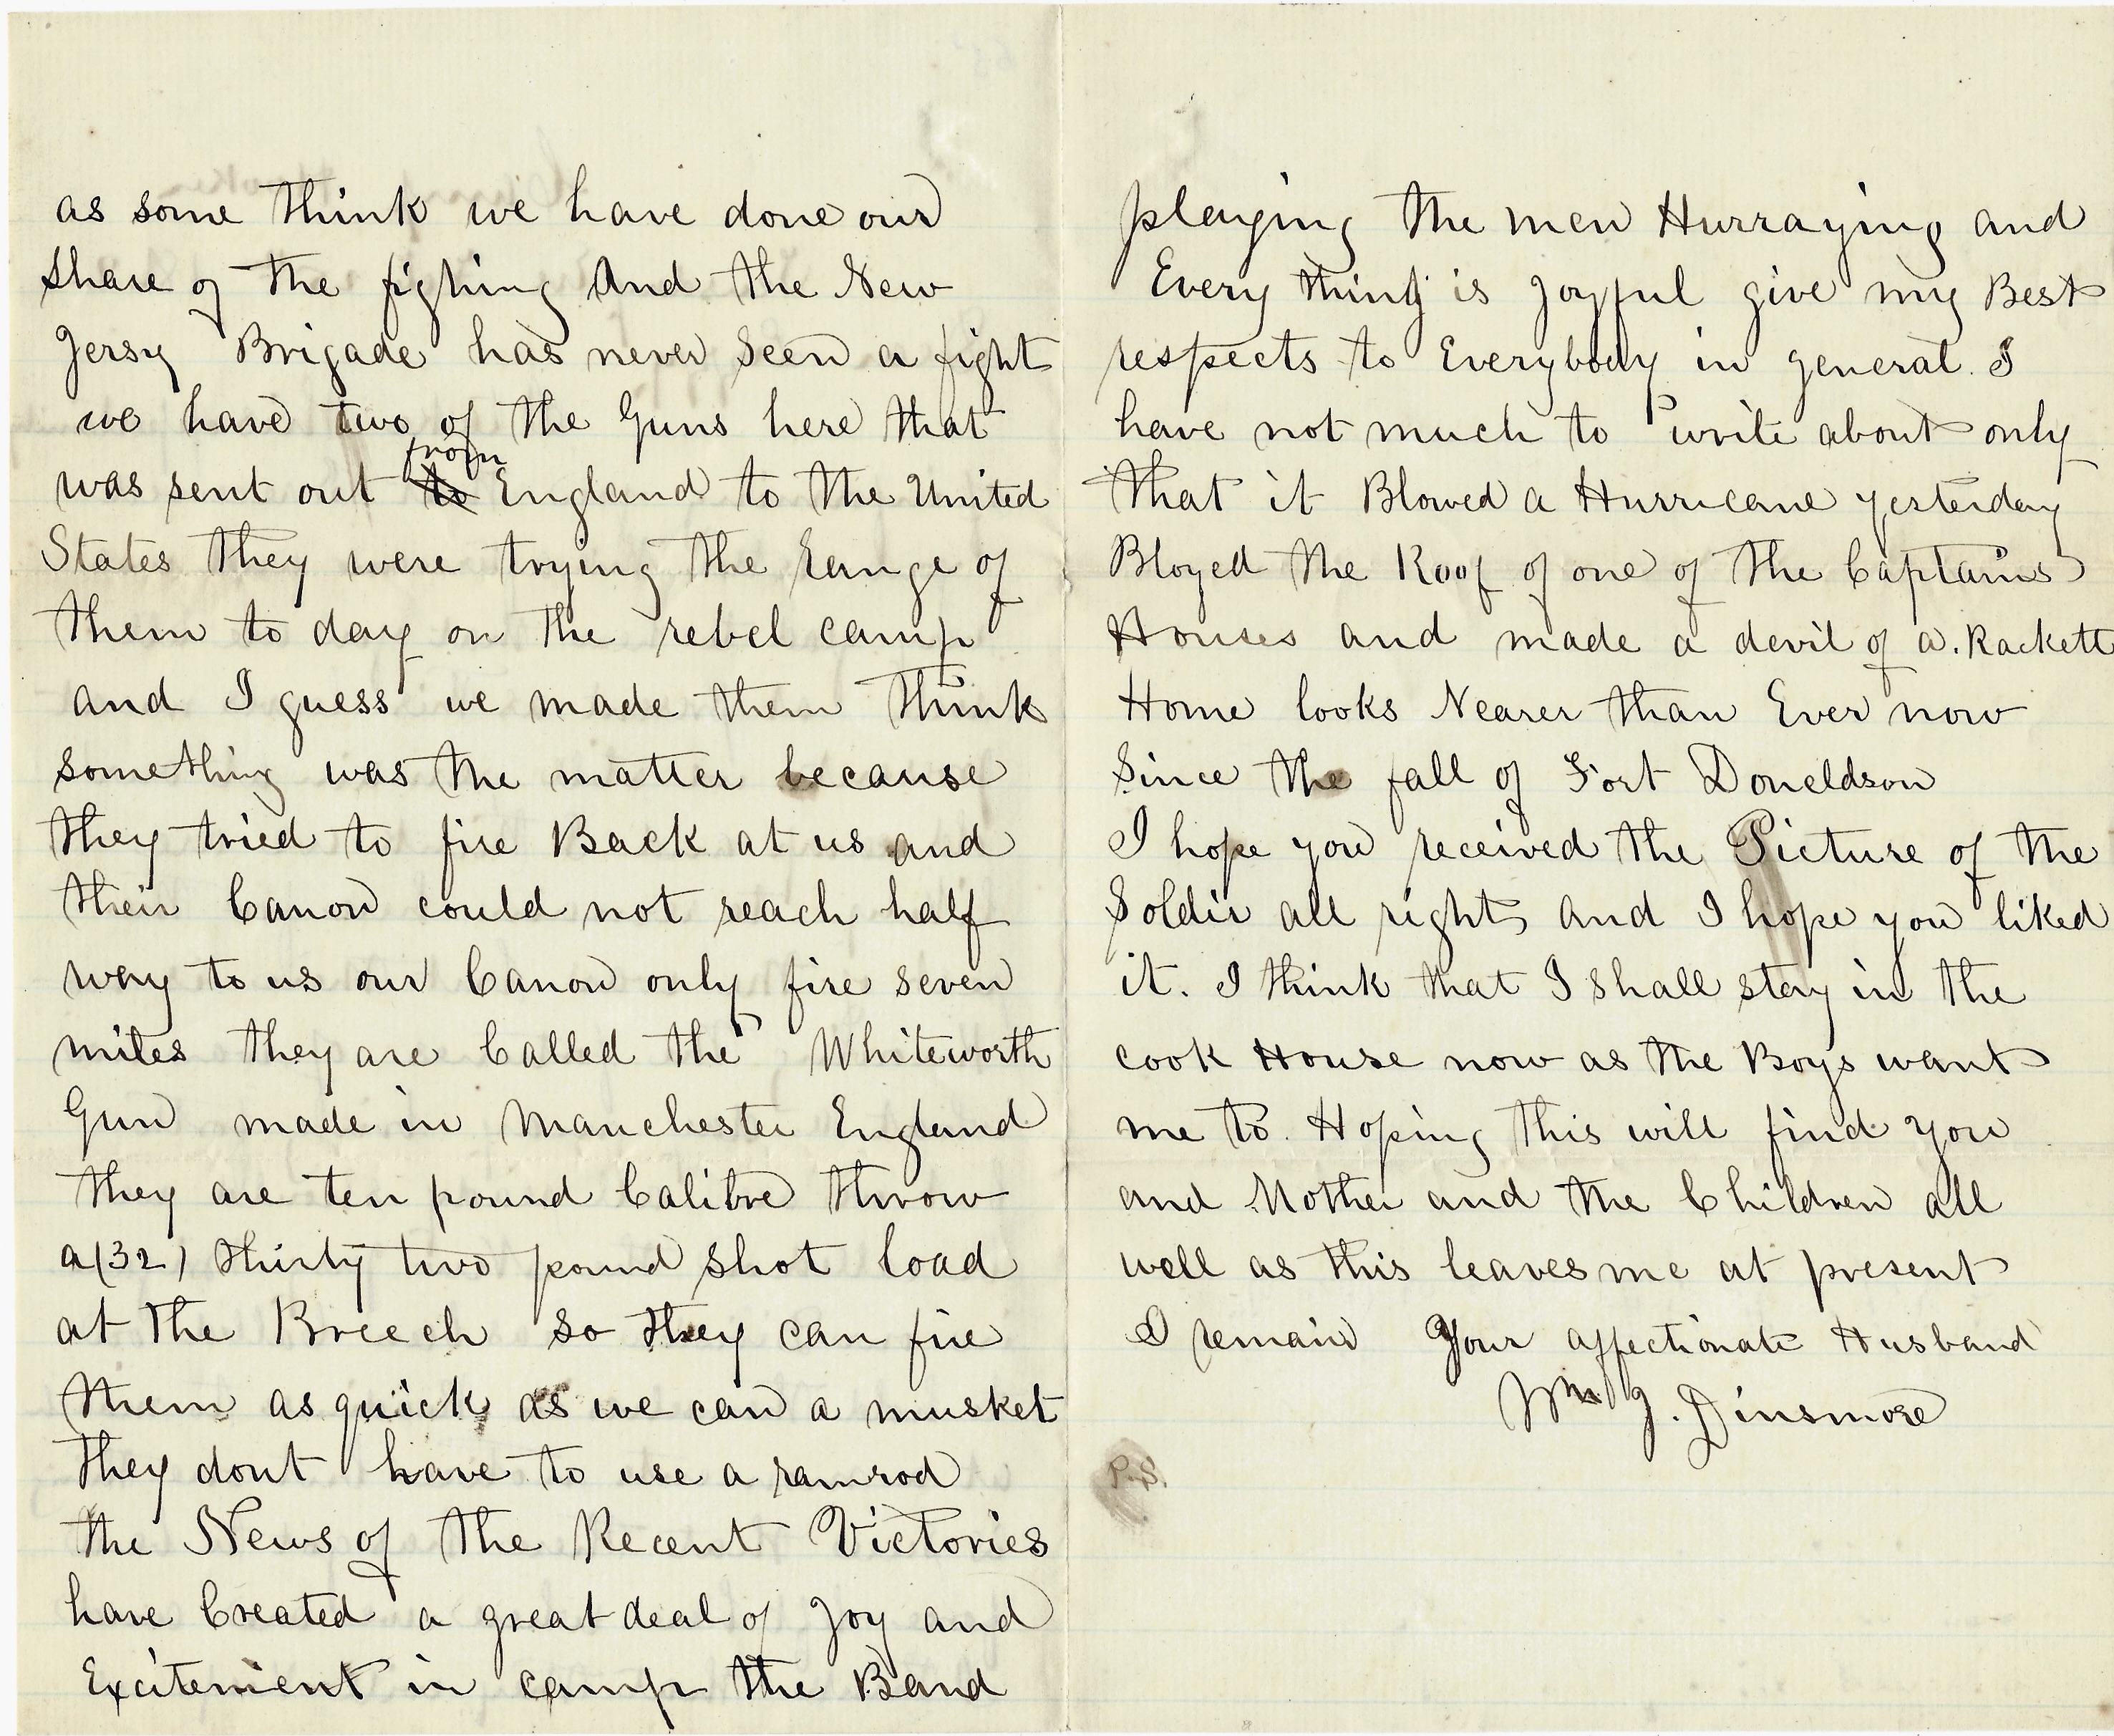 as some think we have done our
share of the fighing And the New
Jersy Brigade has never seen a fight
we have two of the Guns here that
from
was sent out to England to the United
States they were trying the range of
them to day on the rebel camp
and I guess we made them think
something was the matter because
they tried to fire Back at us and
their Canon could not reach half
way to us our Canon only fire seven
miles they are Called the Whiteworth
Gun made in Manchester England
they are ten pound Calibre throw
a (32) thirty two pound shot load
at the Breech so they can fire
them as quick as we can a musket
they dont have to use a ramrod
the News of the Recent Victories
have Created a great deal of Joy and
Excitement in camp the Band
playing the men Hurraying and
Every thing is Joyful give my Best
respects to Everybody in general. I
have not much to write about only
that it Blowed a Hurricane yesterday
Bloyed the Roof of one of the Captains
Houses and made a devil of a. Rackett
Home looks Nearer than Ever now
since the fall of Fort Doneldson
I hope you received the Picture of the
Soldir all right and I hope you liked
it. I think that I shall stay in the
cook House now as the Boys want
me to. Hoping this will find you
and Mother and the Children all
well as this leaves me at present
I remain Your affectionate Husband
Wm J. Dinsmore
P.S.